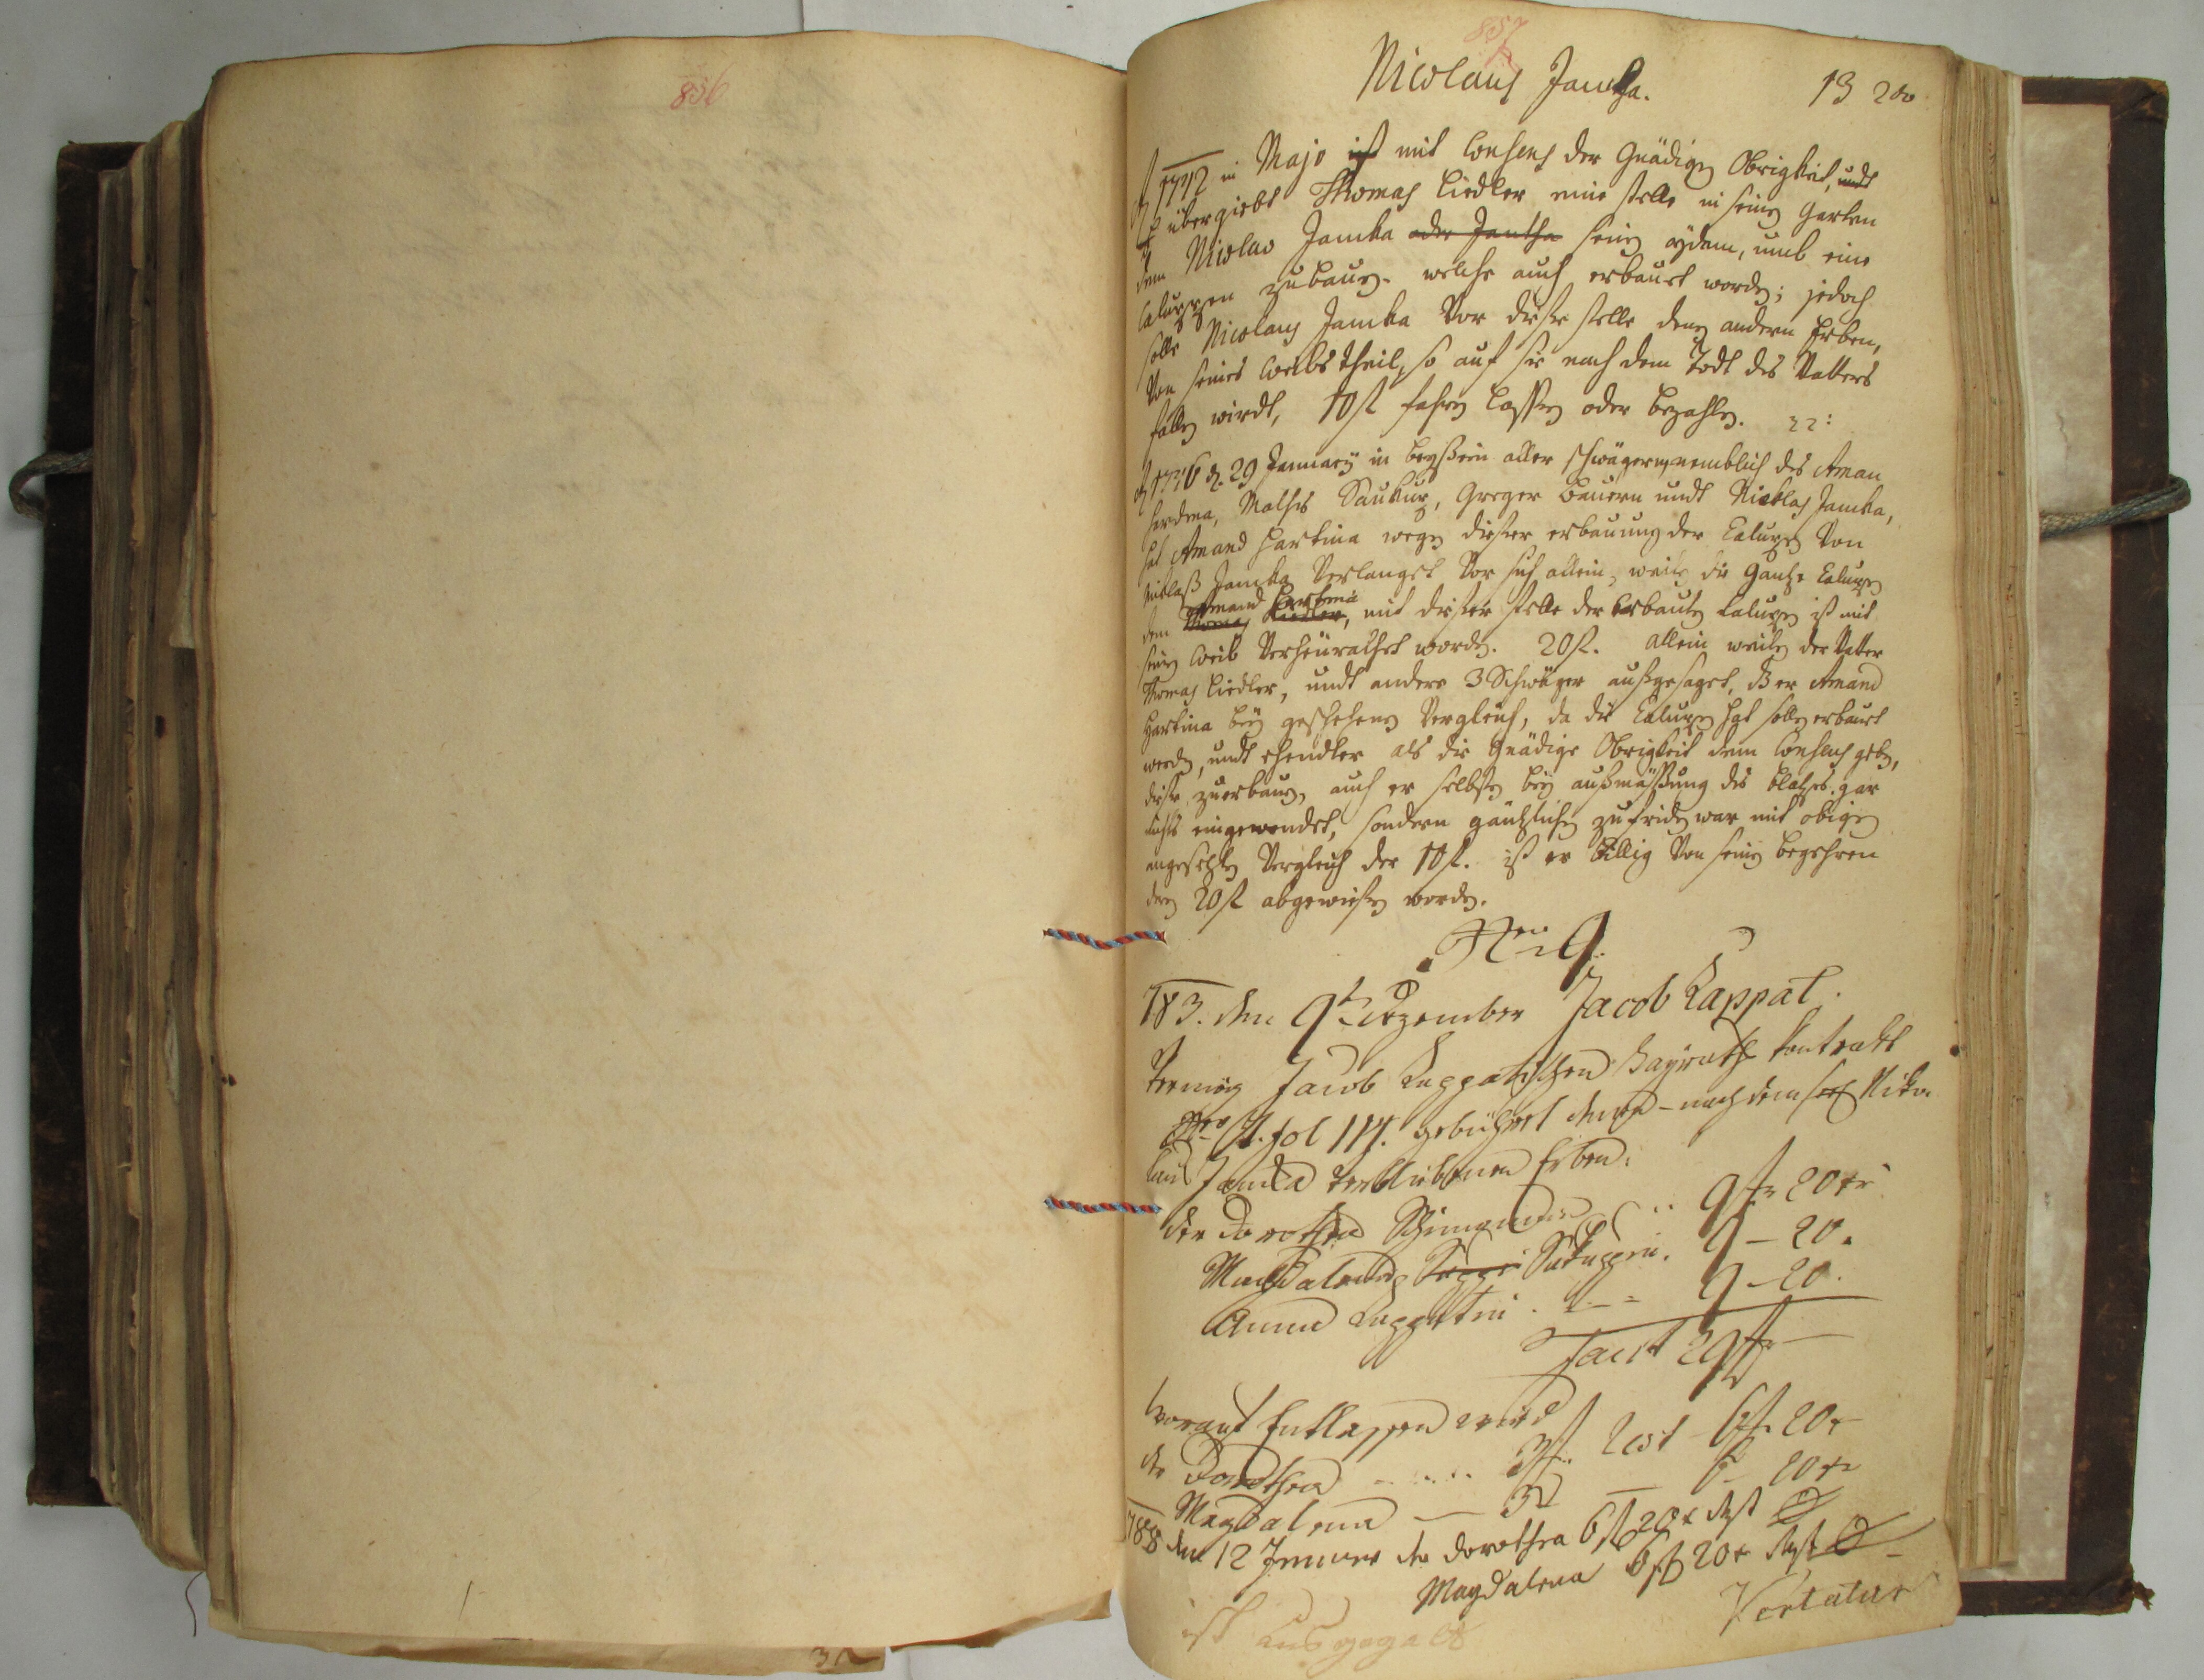 856
857
Nicolaus Jamka.
13 200
1742 in Majo ist mit Consens der Gnädigen Obrigkeit, undt
übergiebt Thomas Liedler eine stelle in seinen Garten
dem Nicolao Jamka oder Jantha seinen aydam, umb eine
Caluppen zubauen. welche auch erbauet worden; jedoch
solle Nicolaus Jamka Vor diese stelle denen andern Erben,
Von seines Weibs theil, so auf sie nach dem Todt des Vatters
fallen wirdt, 10 fl fahren lassen oder bezahlen.
d. 29 January in beysein aller schwägern, nemblich des Aman
Gregor Bauern undt Nicklas Jamka,
hat Amand Hartina wegen dieser erbauung der Caluppen Von
Niklaß Jamka Verlanget Vor sich allein, weile die Gantze Caluppen
Amand Hartina
dem Thomas Liedler, mit dieser stelle der erbauten Caluppen ist mit
seinen Weib Verheurathet worden. 20 fl. allein weilen der Vatter
Thomas Liedler, undt andere 3 Schwäger außgesaget, dß er Amand
Hartina bey geschehenen Vergleich, da die Caluppen hat sollen erbauet
werden, undt ehender als die Gnädige Obrigkeit den Consens geben,
diese zuerbauen, auch er selbsten bey außmässung des blatzes gar
nichts eingewendet, sondern gäntzlichen zufriden war mit obigen
angesetzten Vergleich der 10 fl. ist er billig Von seinen begehren
deren 20 fl abgewiesen worden.
Nro 9.
783. den 9t Dezember Jacob Kappat.
Vermög Jacob Kappatischen Heyrath Kontrakt
fol 114. gebühret denen nach dem Niko
laus Jamka verbliebenen Erben:
der Dorothea 9 f 20 kr
Magdalena 9 - 20.
Anna Kappatin 9 - 20.
Facit 29 f
worauf Entlassen wird
der Dorothea 3 f. Rest 6 f 20 x
Magdalena 3 6 20 x
den 12 Jenner der Dorothea 6 f 20 x Rest
Magdalena 6 f 20 x Rest
Vertatur
ist
32